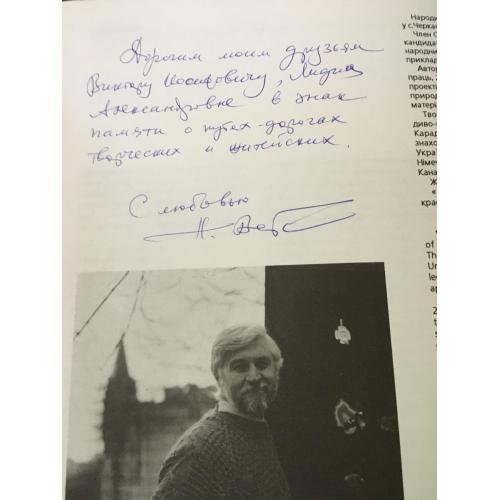 Дорогим моим друзьям
Виктору Иосифовичу, Лидии
Александровне в знак
памяти о путях-дорогах
творческих и житейских.
С любовью
Народи
у с.Черка
Член С
кандидат
народни
приклад
Автор
праць,
проекті
природ
матері
Тво
диво-
Карад
знахо
Украї
Німе
Кана
Ж
«
кра
of
Th
Un
lec
ap
2